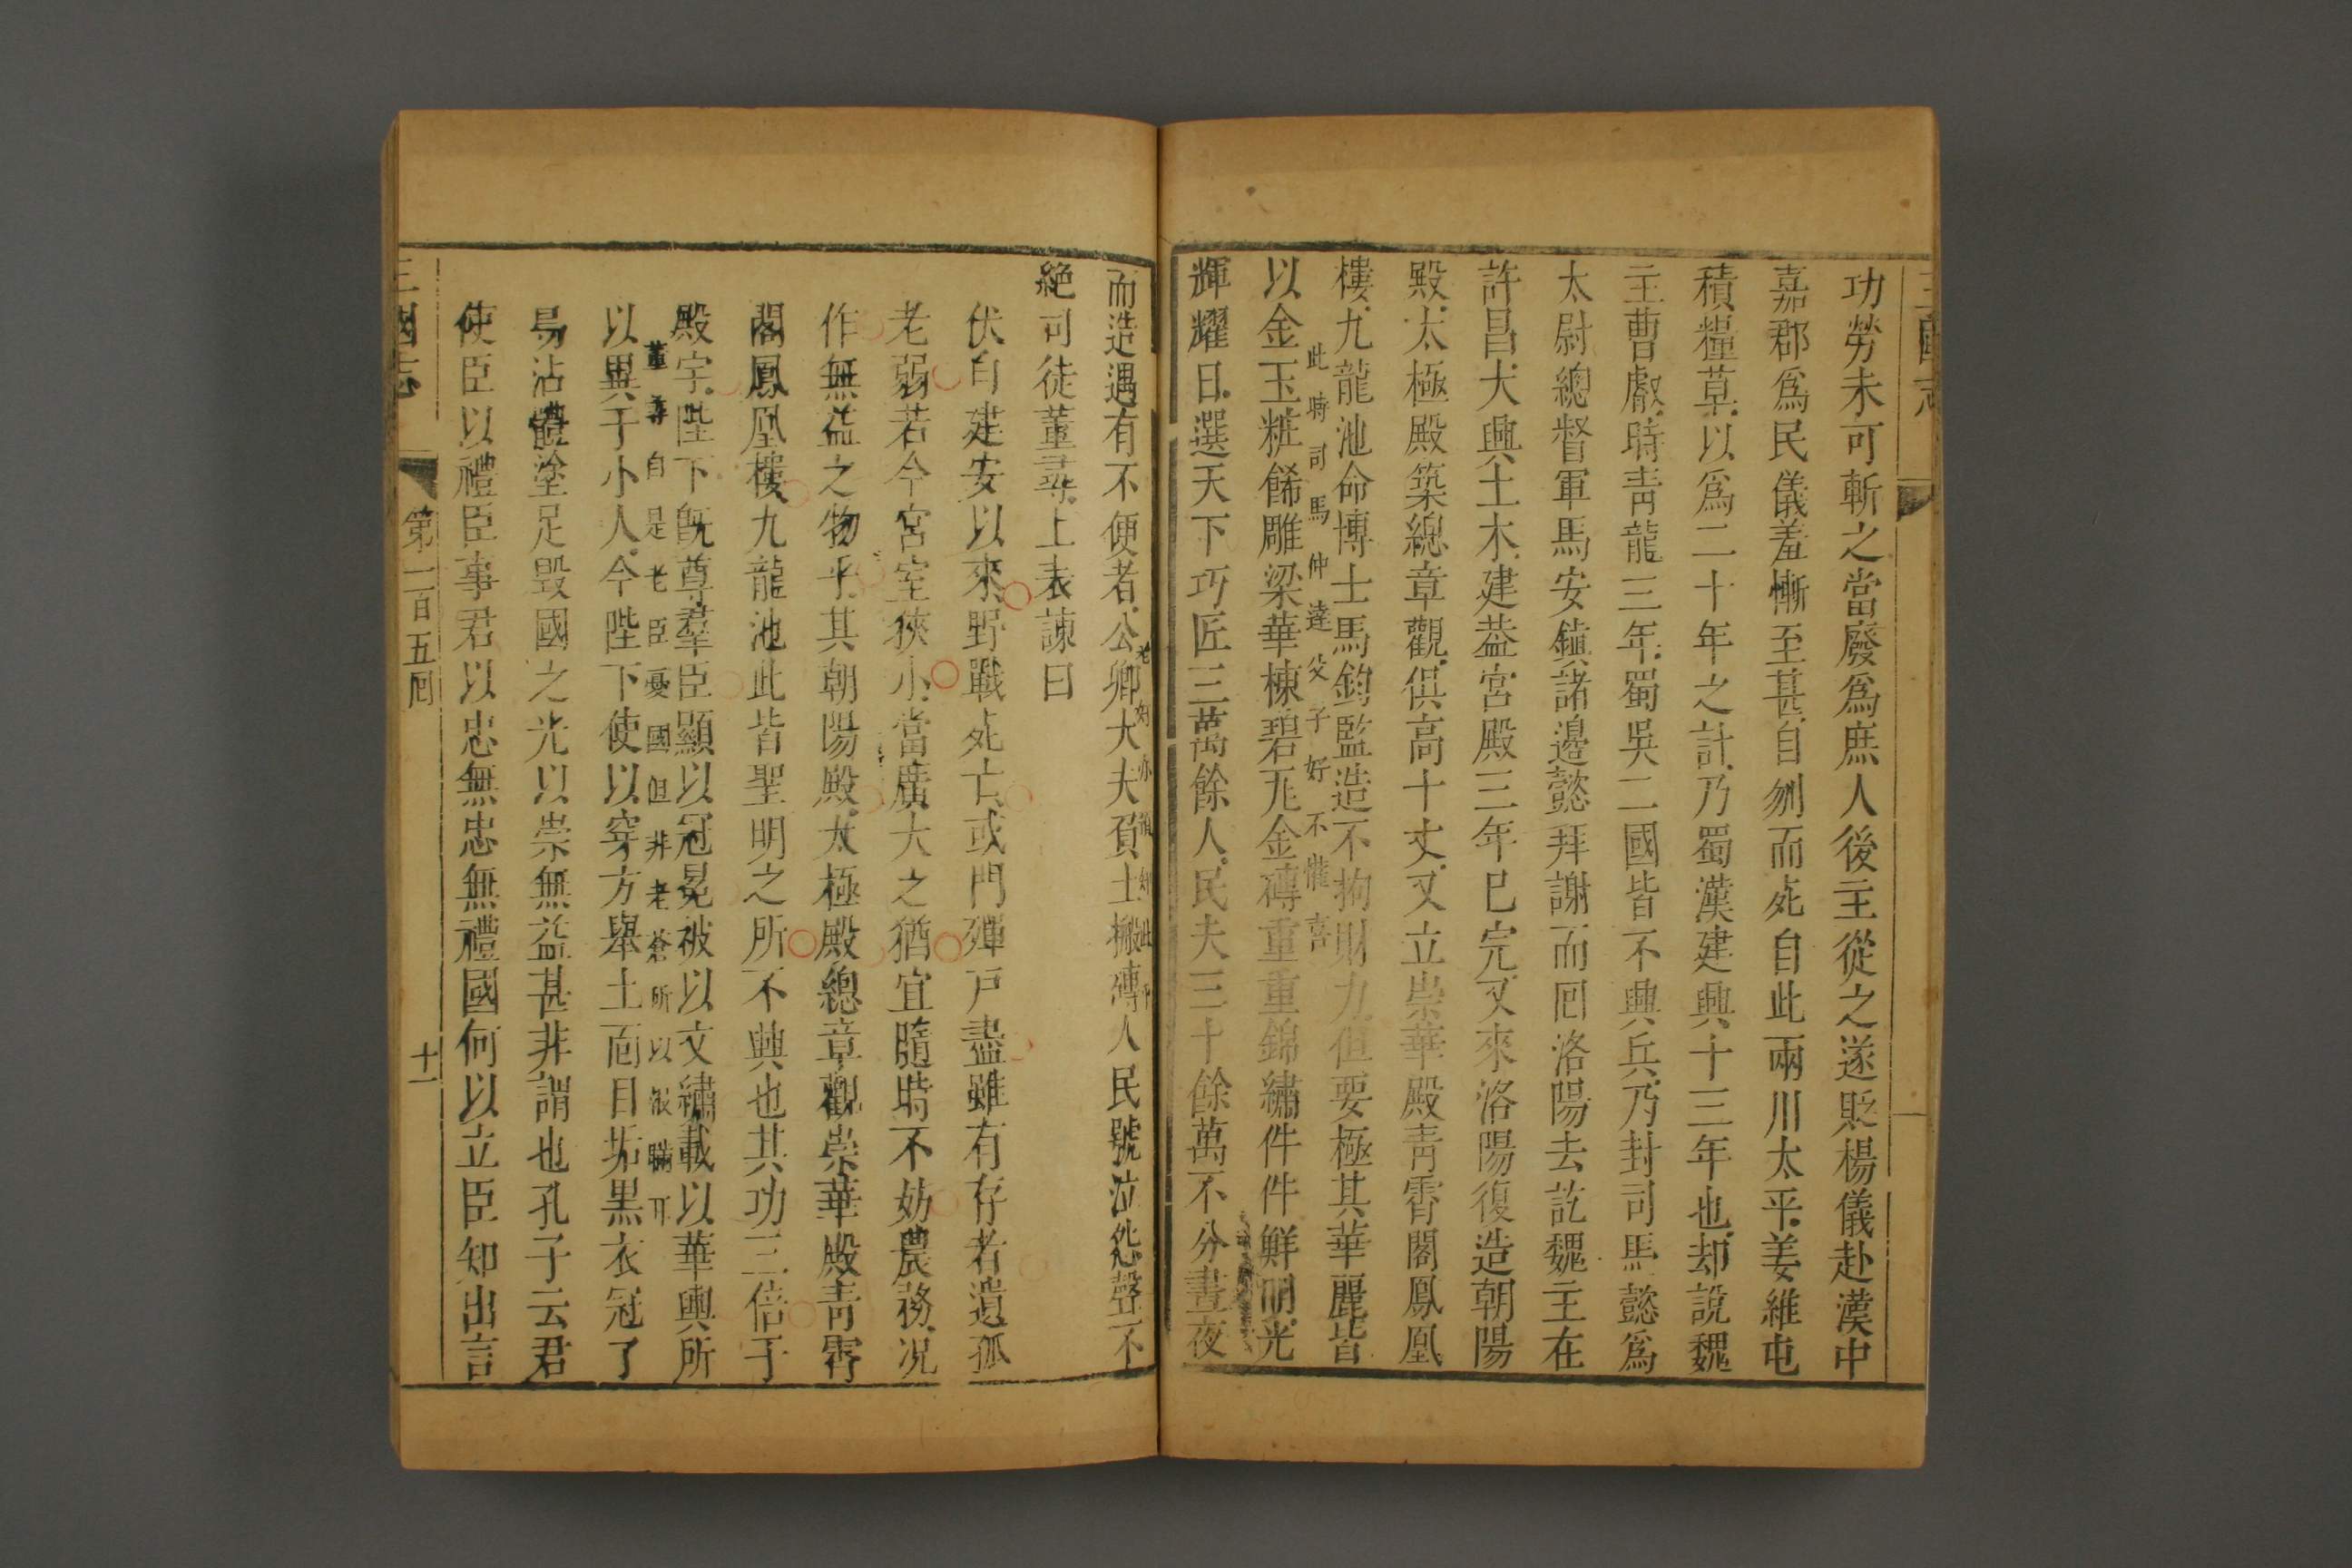 功勞未可斬之當廢爲庶人後主從之遂貶楊儀赴漢中
嘉郡爲民儀羞慚至甚自刎而死自此兩川太平姜維屯
積糧草以爲二十年之計乃蜀漢建興十三年也却說魏
主曹叡時青龍三年蜀吳二國皆不興兵乃封司馬懿爲
太尉總督軍馬安鎮諸邊懿拜謝而囘洛陽去訖魏主在
許昌大興土木建葢宮殿三年已完又來洛陽復造朝陽
殿太極殿築總章觀俱高十丈又立崇華殿青霄閣鳳凰
樓九龍池命博士馬鈞監造不拘財力但要極其華麗皆
此時司馬仲達父子好不懽喜
以金玉粧餙雕梁華棟碧瓦金磚重重錦繡件件鮮明光
輝耀日選天下巧匠三萬餘人民夫三十餘萬不分晝夜
而造遇有不便者公卿大夫負土搬磚人民號泣怨聲不
絶司徒董尋上表諫曰
伏自建安以來野戰死亡或門殫戸盡雖有存者遺孤
老弱若今宮室狹小當廣大之猶宜隨時不妨農務况
作無益之物乎其朝陽殿太極殿總章觀崇華殿青霄
閣鳳凰樓九龍池此皆聖明之所不興也其功三倍于
殿宇陛下旣尊羣臣顯以冠冕被以文繡載以華輿所
董尋自是老臣憂國但非老蒼所以被瞞耳
以異于小人今陛下使以穿方舉土面目垢黑衣冠了
鳥沾體塗足毀國之光以崇無益甚非謂也孔子云君
使臣以禮臣事君以忠無忠無禮國何以立臣知出言
三國志
第一百五囘
十一